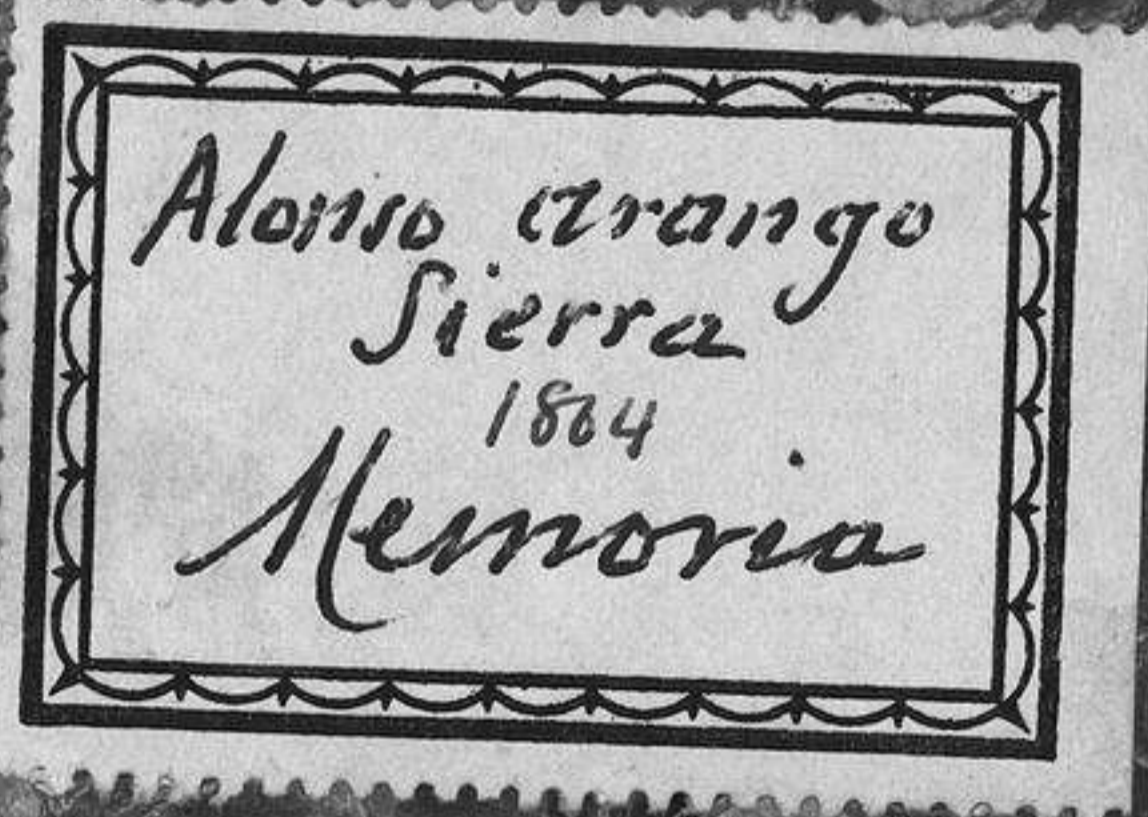 Alonso arango
Sierra
1864
Memoria